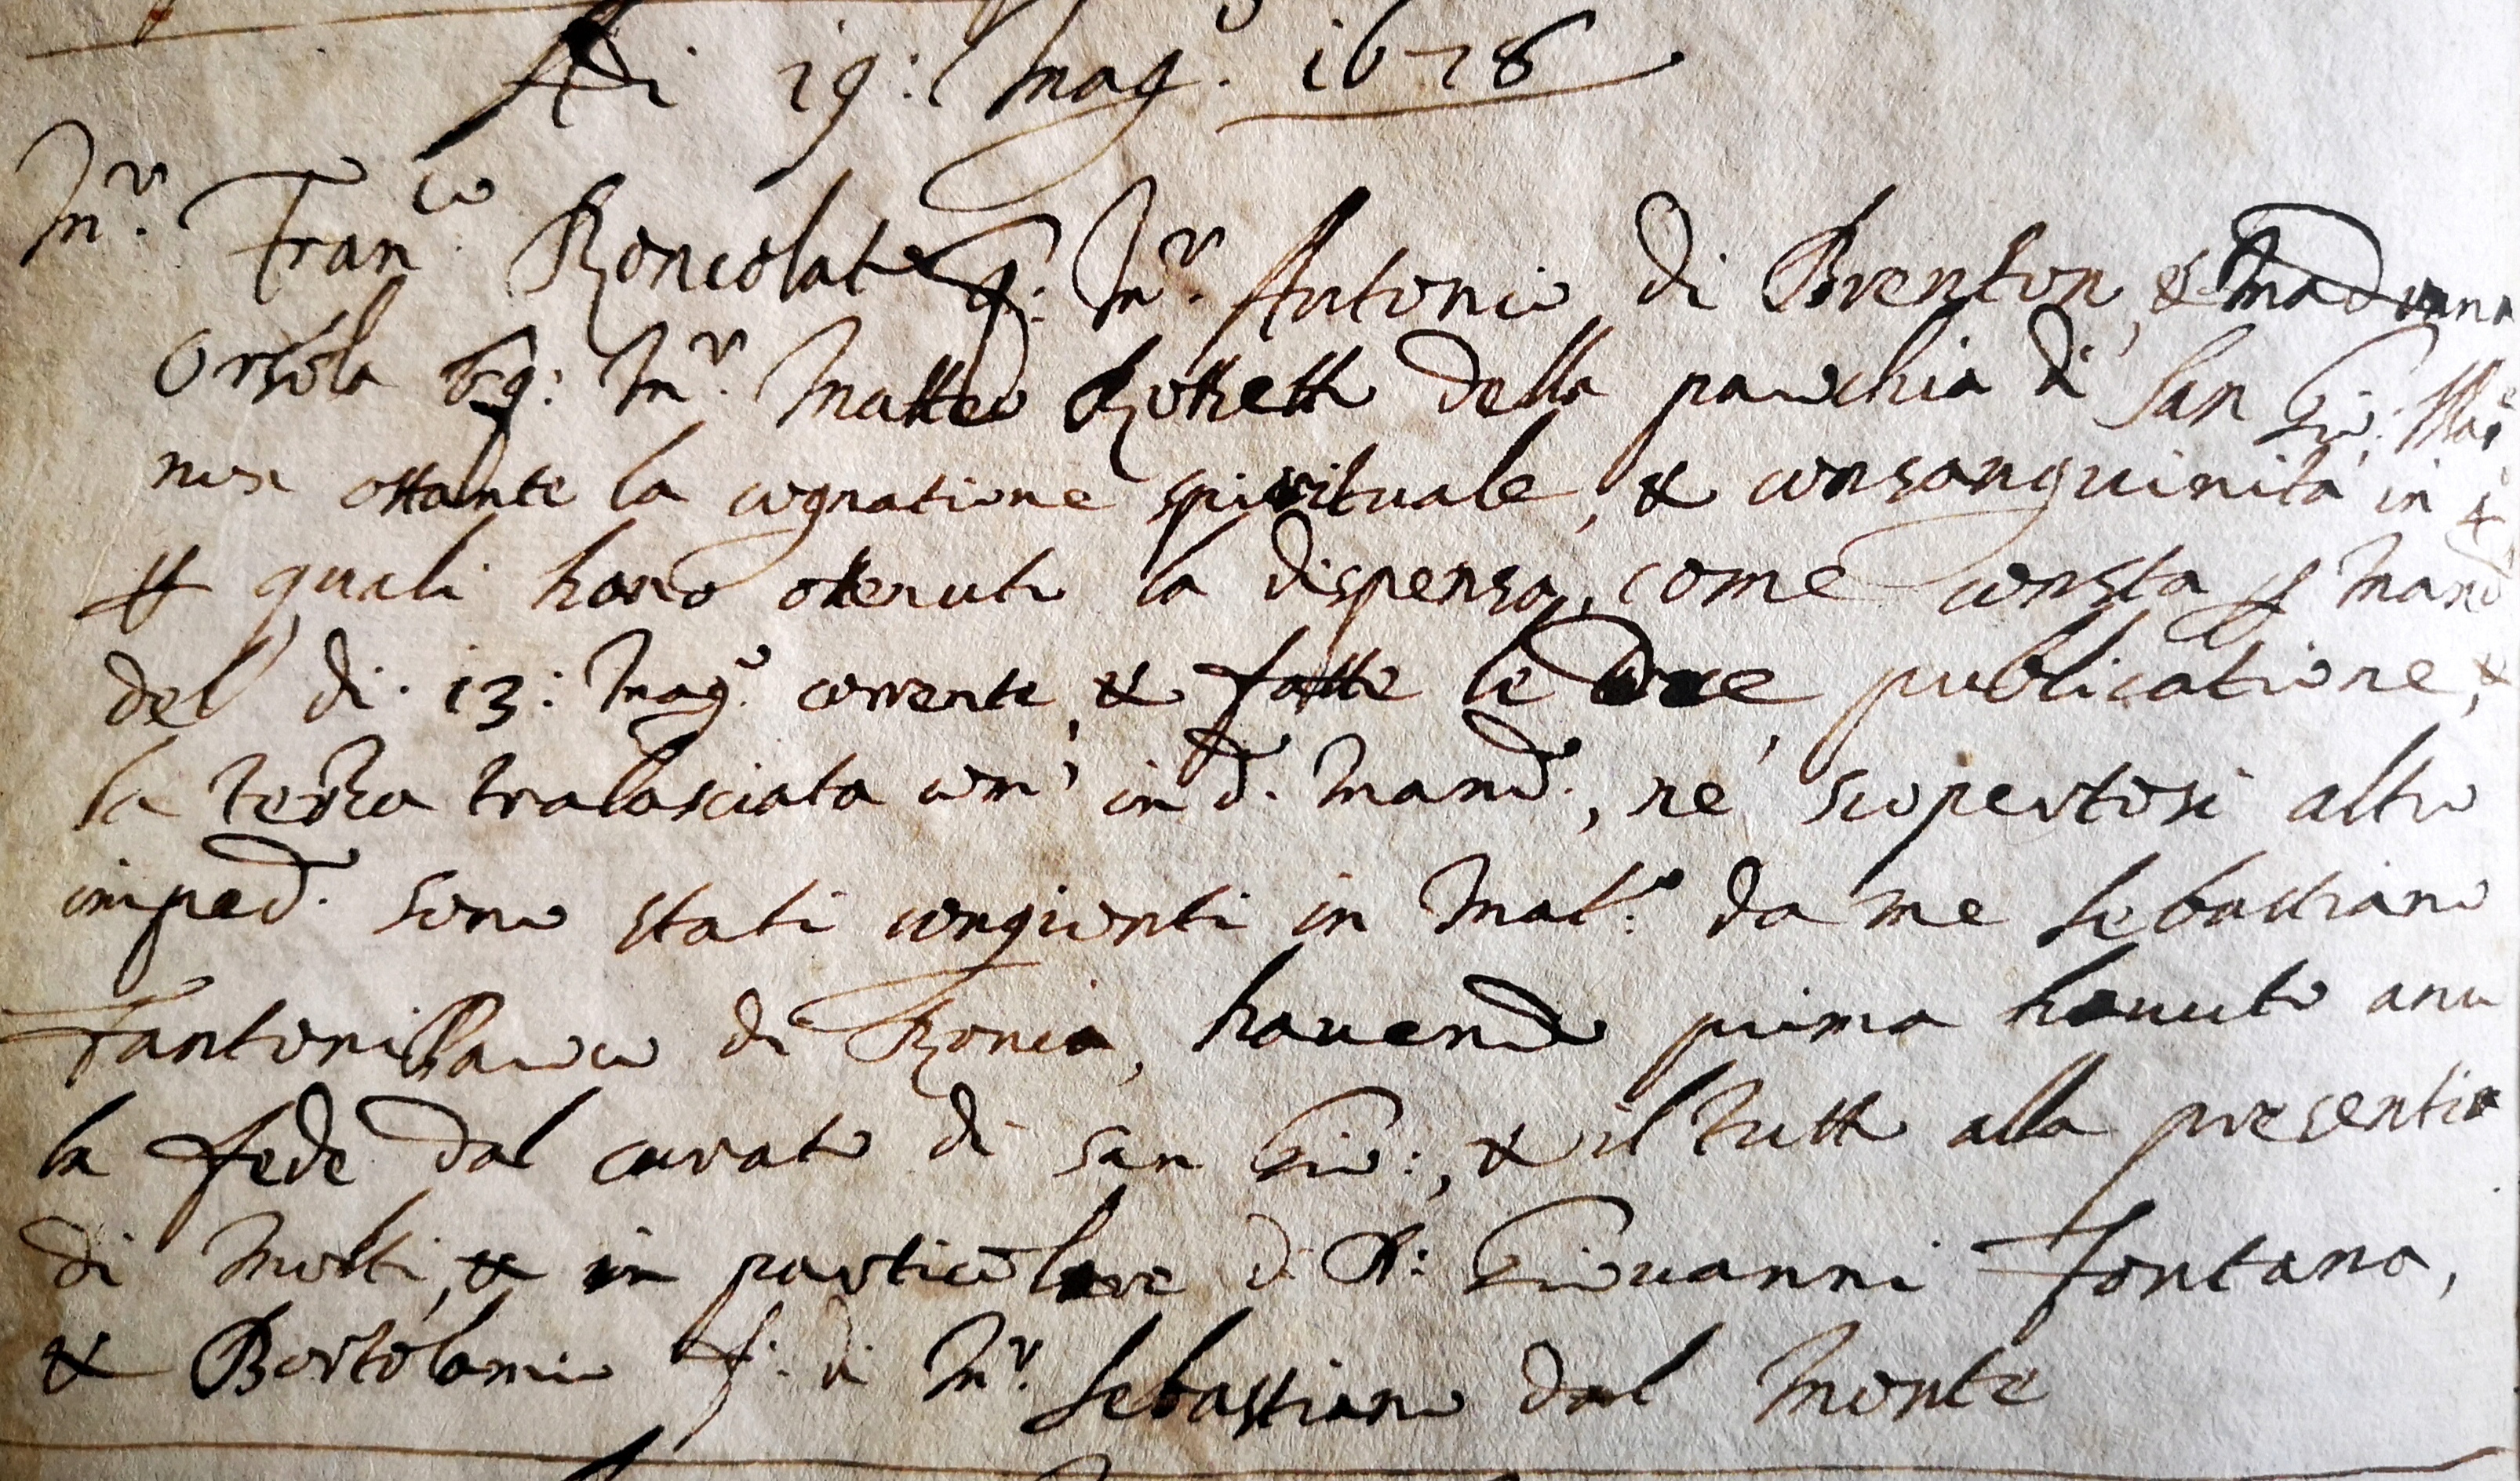 Adi 19: mag.o 1678
m.r Fran.co Roncolato q: m.r Antonio di Brenton, & madonna
Orsola q: m.r Matteo della parochia di San Gio:
non ostante la cognatione spirituale, & consanguinità in 4
p quali hano otenuto la dispensa, come consta p mand
del di 13: mag.o corrente, & fatte le due publicatione, &
la terza tralasciata com' in d. mand., ne scopertosi altro
imped. sono stati congionti in mat.o da me Sebastiano
Fantoni Paroco di Roncà, havendo prima havuto anco
la fede dal curato di San Gio:, & il tutto alla presentia
di molti, & in particolare di Giovanni Fontana,
& Bortolamio f: di m.r Sebastiano dal Monte